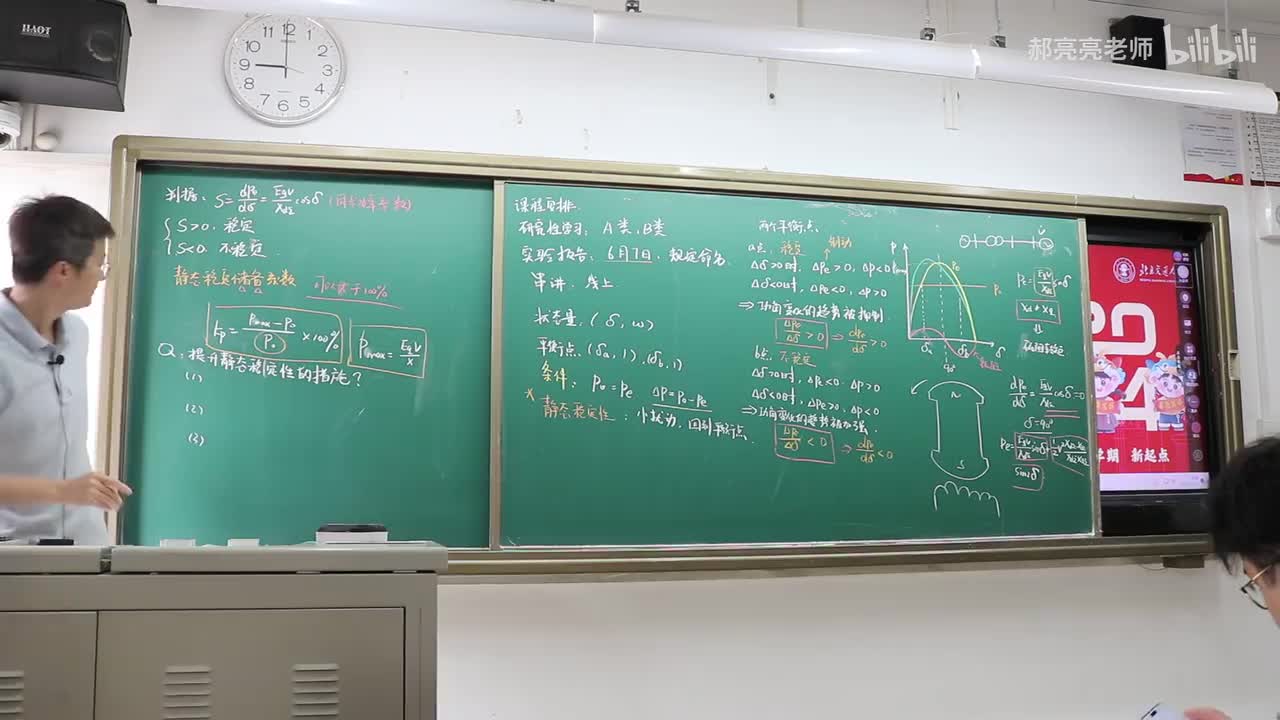 郝亮亮老师 bilibili
HAOT
12 1 2 3 4 5 6 7 8 9 10 11
判据: S=dPe/dδ=EqV/Xd∑ cosδ
{ S>0, 稳定
S<0, 不稳定
静态稳定储备系数
可以大于100%
Kp=(Pmax-P0)/P0 ×100%
Pmax=EqV/X
Q: 提升静态稳定性的措施?
(1)
(2)
(3)
课程安排
研究性学习: A类, B类
实验报告: 6月7日, 规定命名
串讲: 线上
状态量: (δ, ω)
平衡点: (δa, 1), (δb, 1)
条件: P0=Pe ΔP=P0-Pe
* 静态稳定性: 小扰动, 回到平衡点.
两个平衡点
a点: 稳定 制动
Δδ>0时, ΔPe>0, ΔP<0
Δδ<0时, ΔPe<0, ΔP>0
⇒功角变化的趋势被抑制
ΔPe/Δδ>0 ⇒ dPe/dδ>0
b点: 不稳定
Δδ>0时, ΔPe<0, ΔP>0
Δδ<0时, ΔPe>0, ΔP<0
⇒功角变化的趋势被加强.
ΔPe/Δδ<0 ⇒ dPe/dδ<0
P
P0
δa δb δ
90°
N
S
Pe=EqV/Xd∑ sinδ
dPe/dδ=EqV/Xd∑ cosδ=0
δ=90°
sin2δ
学期 新起点